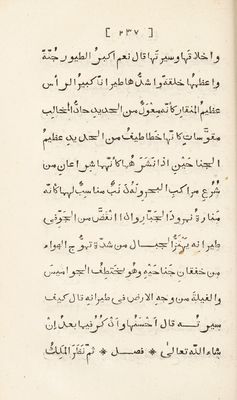 [ ٢٣٧ ]
واخلاقها وسيرتها قال نعم اكبر الطيور جُثّة
واعظمها خلقةً واشدّها طيرانًا كبير الرأس
عظيم المنقار كانّه معول من الحديد حادّ المخالب
مقوّسات كانّها خطاطيف من الحديد عظيم
الجناحين اذا نشرهما كانّها شراعان من
شُرُع مراكب البحر وله ذنب مناسب لهما كانّه
منارة نمرود الجبّار واذا انقضّ من الجوّ فى
طيرانه يهتزّ الجبال من شدّة تموّج الهواء
من خفقان جناحيه وهو يختطف الجواميس
والفيلة من وجه الارض فى طيرانه قال كيف
سيرته قال احسنها واذكر فيها بعد إن
شاء الله تعالى * فصل * ثمّ نظر الملك